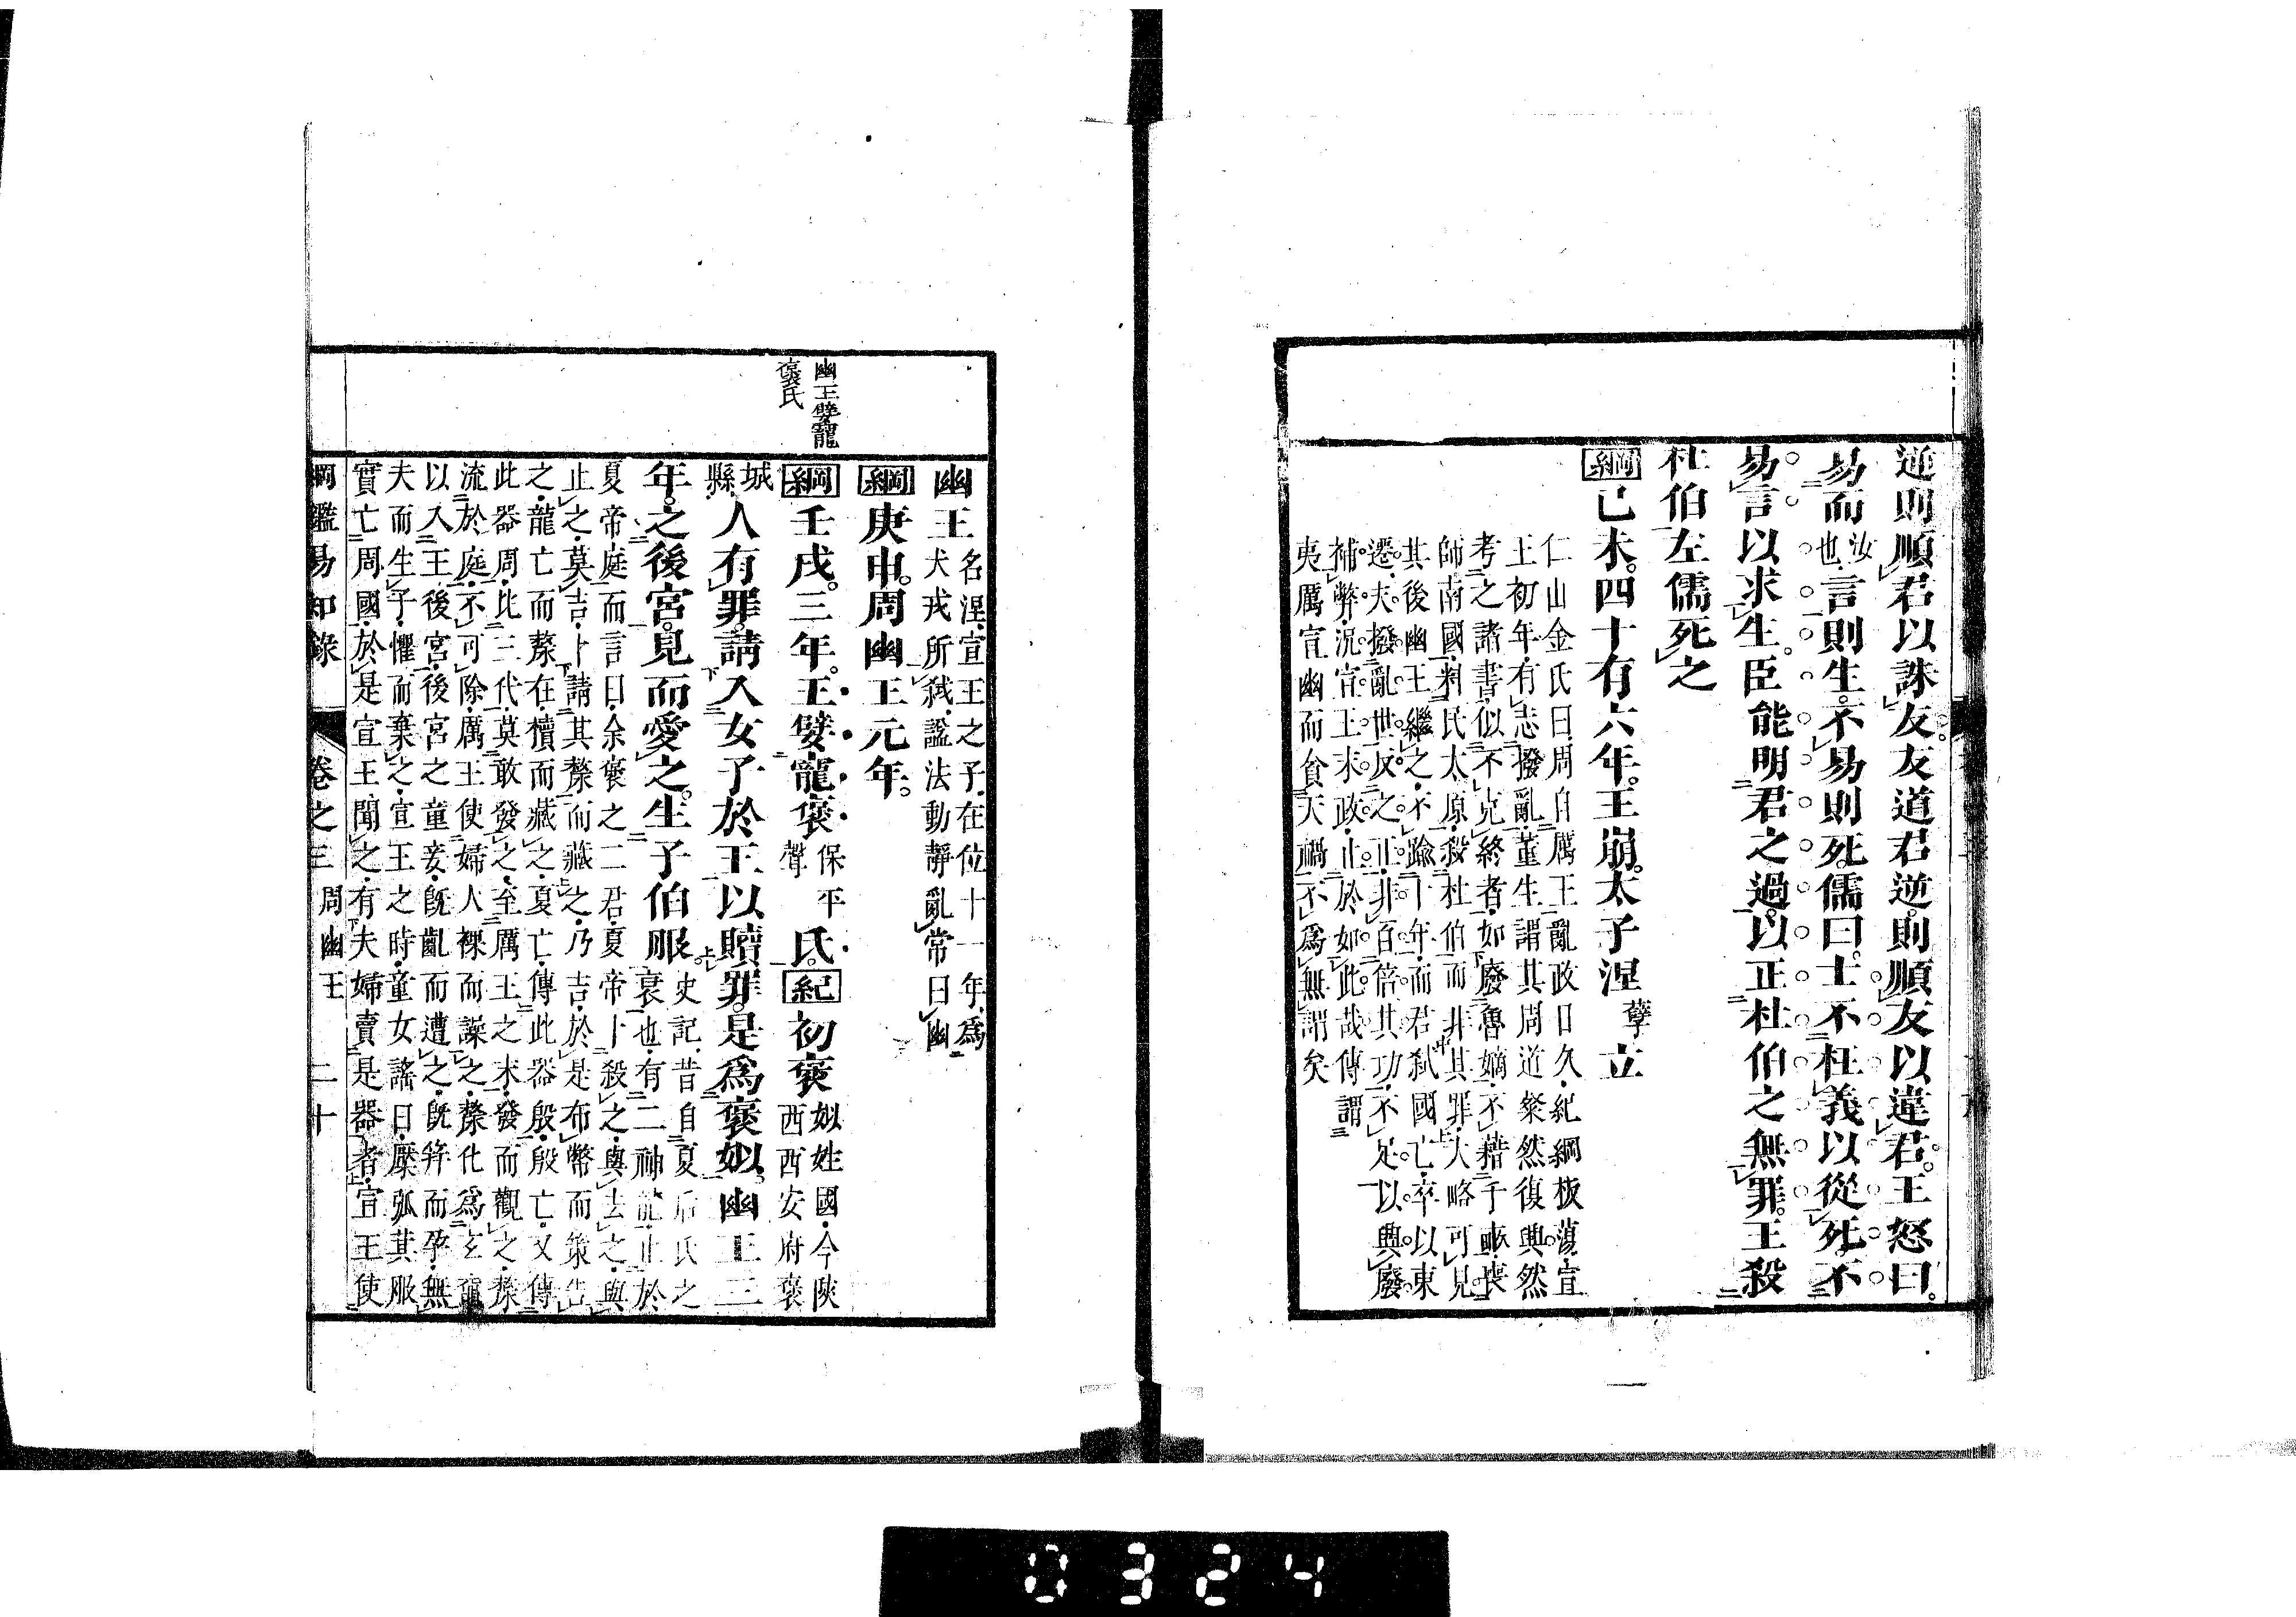 逆則順君以誅友友道君逆則順友以違君王怒曰
易而汝也言則生不易則死儒曰士不枉義以從死不
易言以求生臣能明君之過以正杜伯之無罪王殺
杜伯左儒死之
綱己未四十有六年王崩太子涅孽立
仁山金氏曰周自厲王亂政日久紀綱板蕩宣
王初年有志撥亂董生謂其周道粲然復興然
考之諸書似不克終者如廢魯嫡不藉千畝喪
師南國料民太原殺杜伯而非其罪大略可見
其後幽王繼之不踰十年而君弑國亡卒以東
遷夫撥亂世反之正非百倍其功不足以興廢
補弊況宣王末政止於如此哉傳謂
夷厲宣幽而貪天禍不為無謂矣
幽王名涅宣王之子在位十一年為
犬戎所弑諡法動靜亂常曰幽
綱庚申周幽王元年
幽王嬖寵
褒氏
綱壬戌三年王嬖寵褒保平聲氏紀初褒姒姓國今陝
西西安府褒
城縣人有罪請入女子於王以贖罪是為褒姒幽王三
年之後宮見而愛之生子伯服史記昔自夏后氏之
衰也有二神龍止於
夏帝庭而言曰余褒之二君夏帝卜殺之與去之與
止之莫吉卜請其漦而藏之乃吉於是布幣而策告
之龍亡而漦在櫝而藏之夏亡傳此器殷殷亡又傳
此器周比三代莫敢發之至厲王之末發而觀之漦
流於庭不可除厲王使婦人裸而譟之漦化為玄黿
以入王後宮後宮之童妾既齔而遭之既笄而孕無
夫而生子懼而棄之宣王之時童女謠曰檿弧箕服
實亡周國於是宣王聞之有夫婦賣是器者宣王使
綱鑑易知錄 卷之三 周幽王 二十
0324